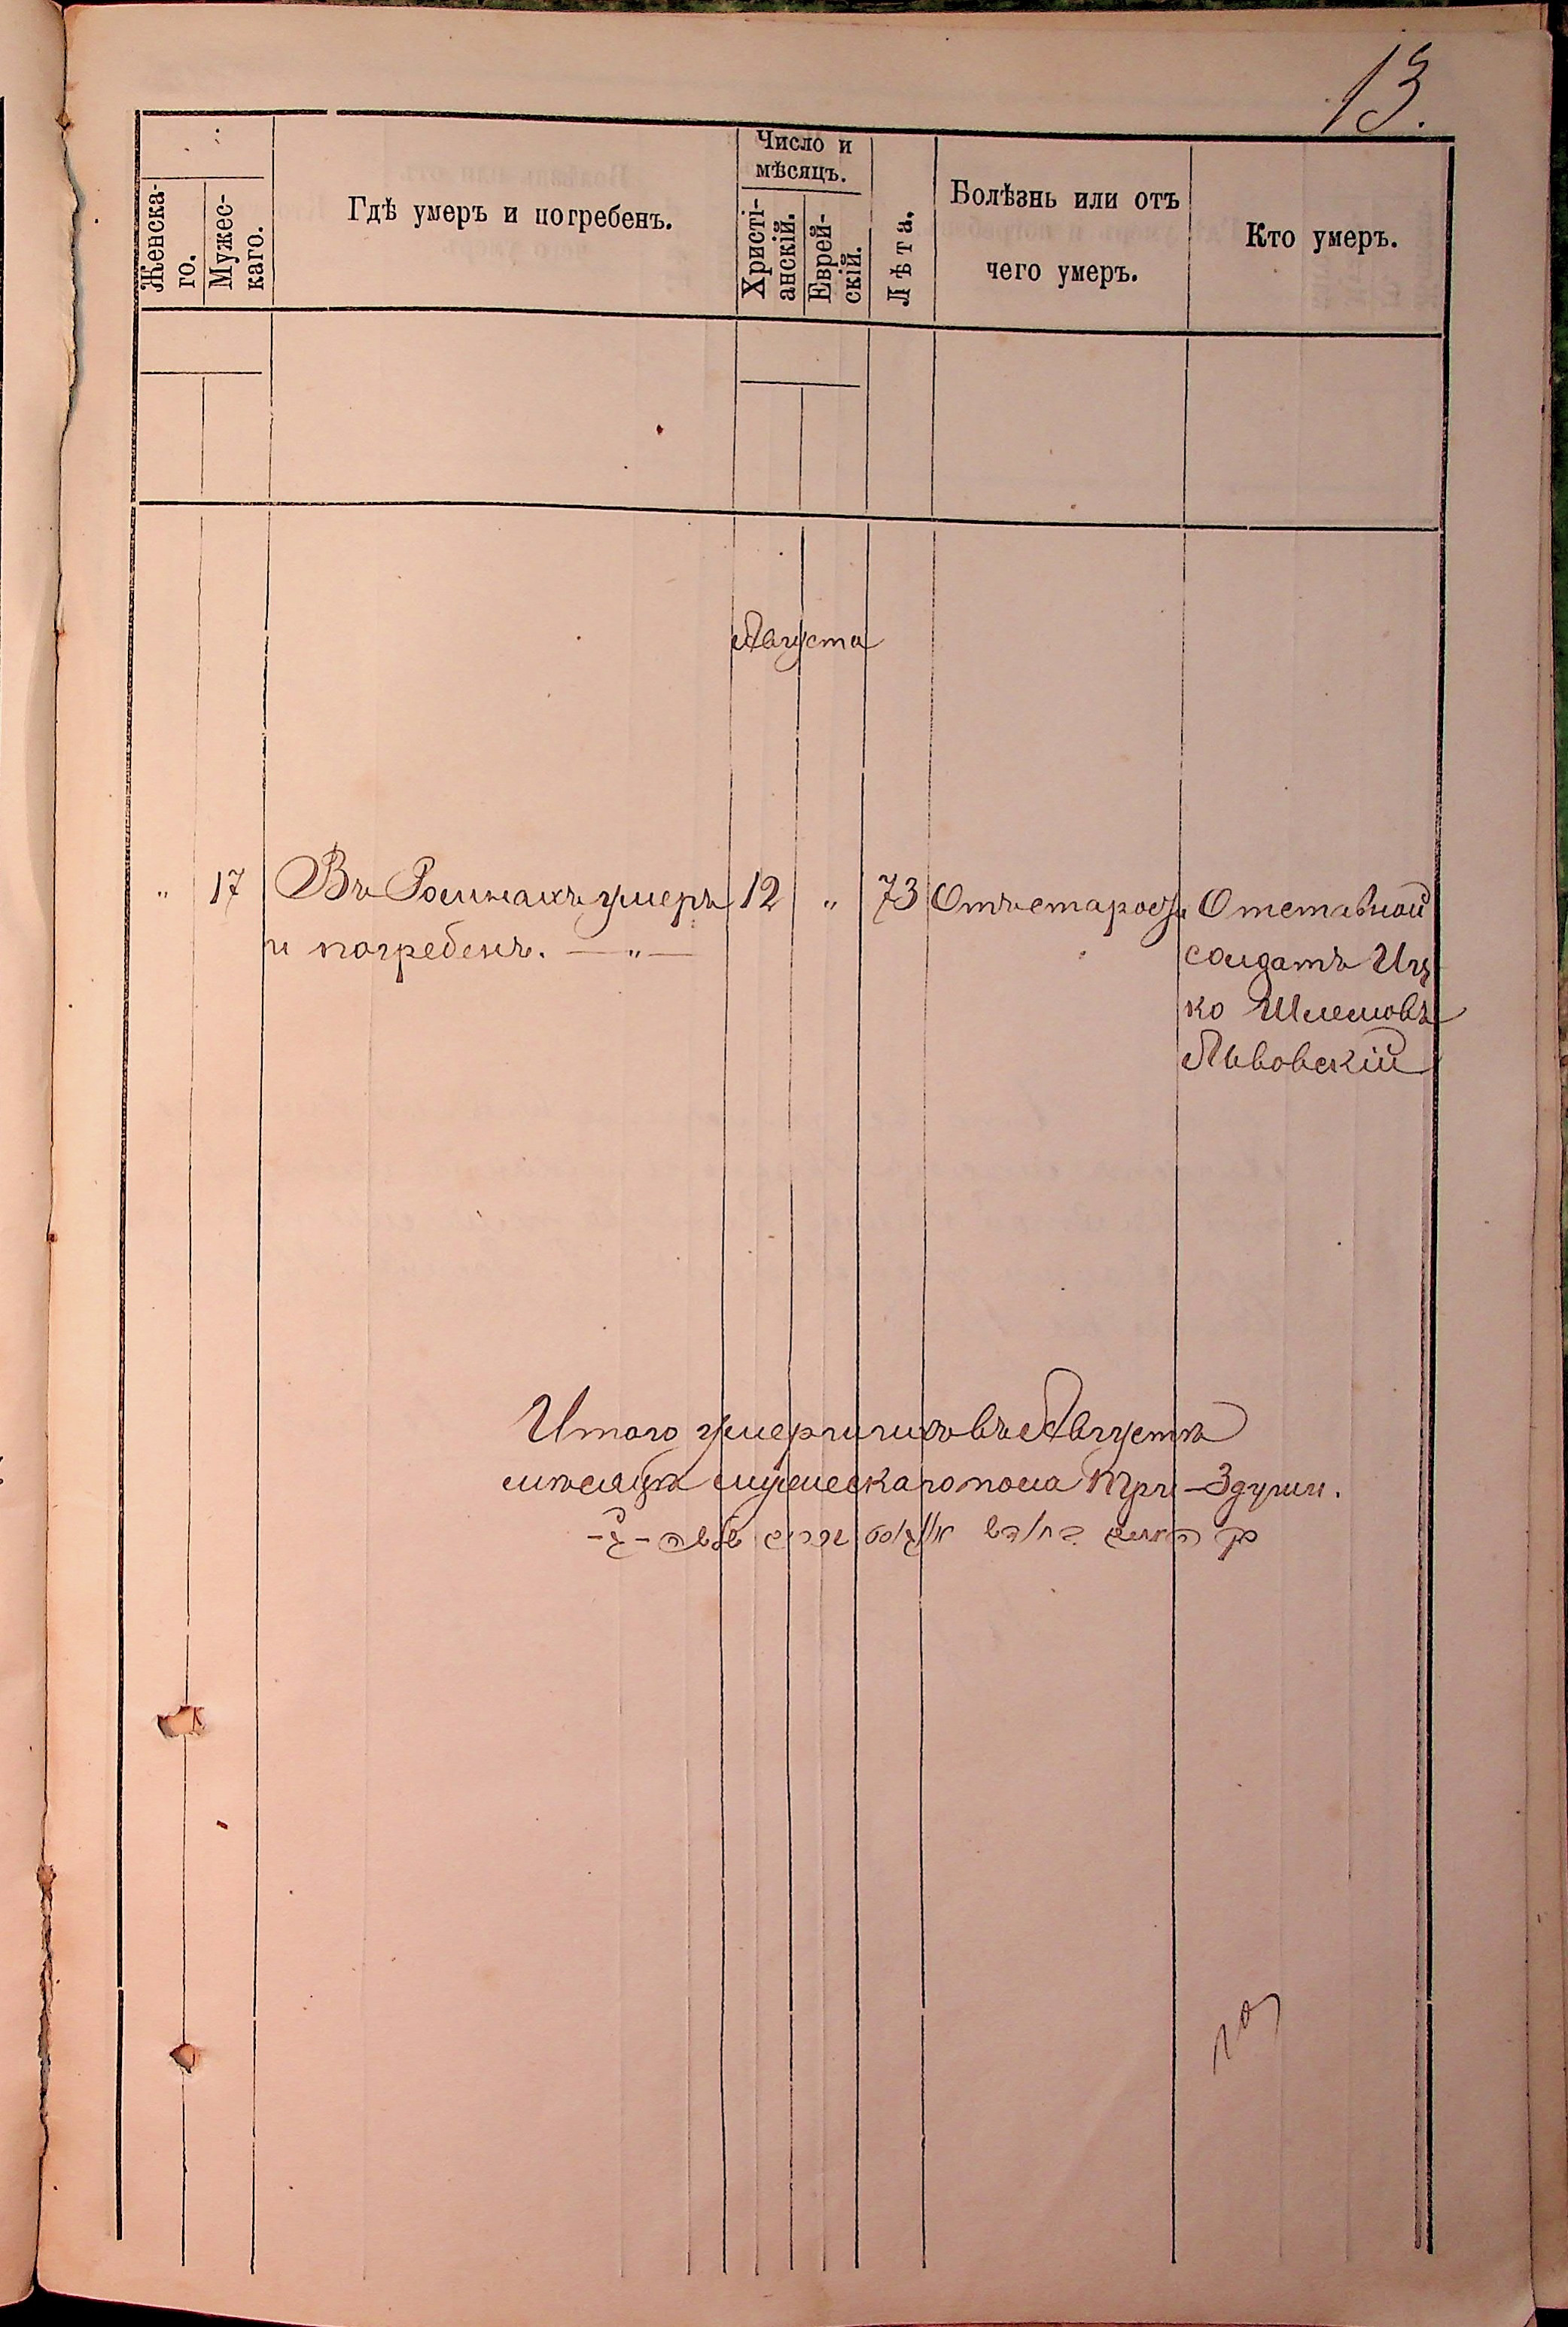 13.
Женска-
го.
Мужес-
каго.
Гдѣ умеръ и погребенъ.
Число и
мѣсяцъ.
Христі-
анскій.
Еврей-
скій.
Лѣта.
Болѣзнь или отъ
чего умеръ.
Кто умеръ.
Августа
„ 17 Въ Ромнахъ умеръ 12 „ 73 Отъ старости Отставной
и погребенъ. — „ — солдатъ Иц
ко Шлемовъ
Львовскій
Итого умершихъ въ Августѣ
мѣсяцѣ мужескаго пола три – 3 души.